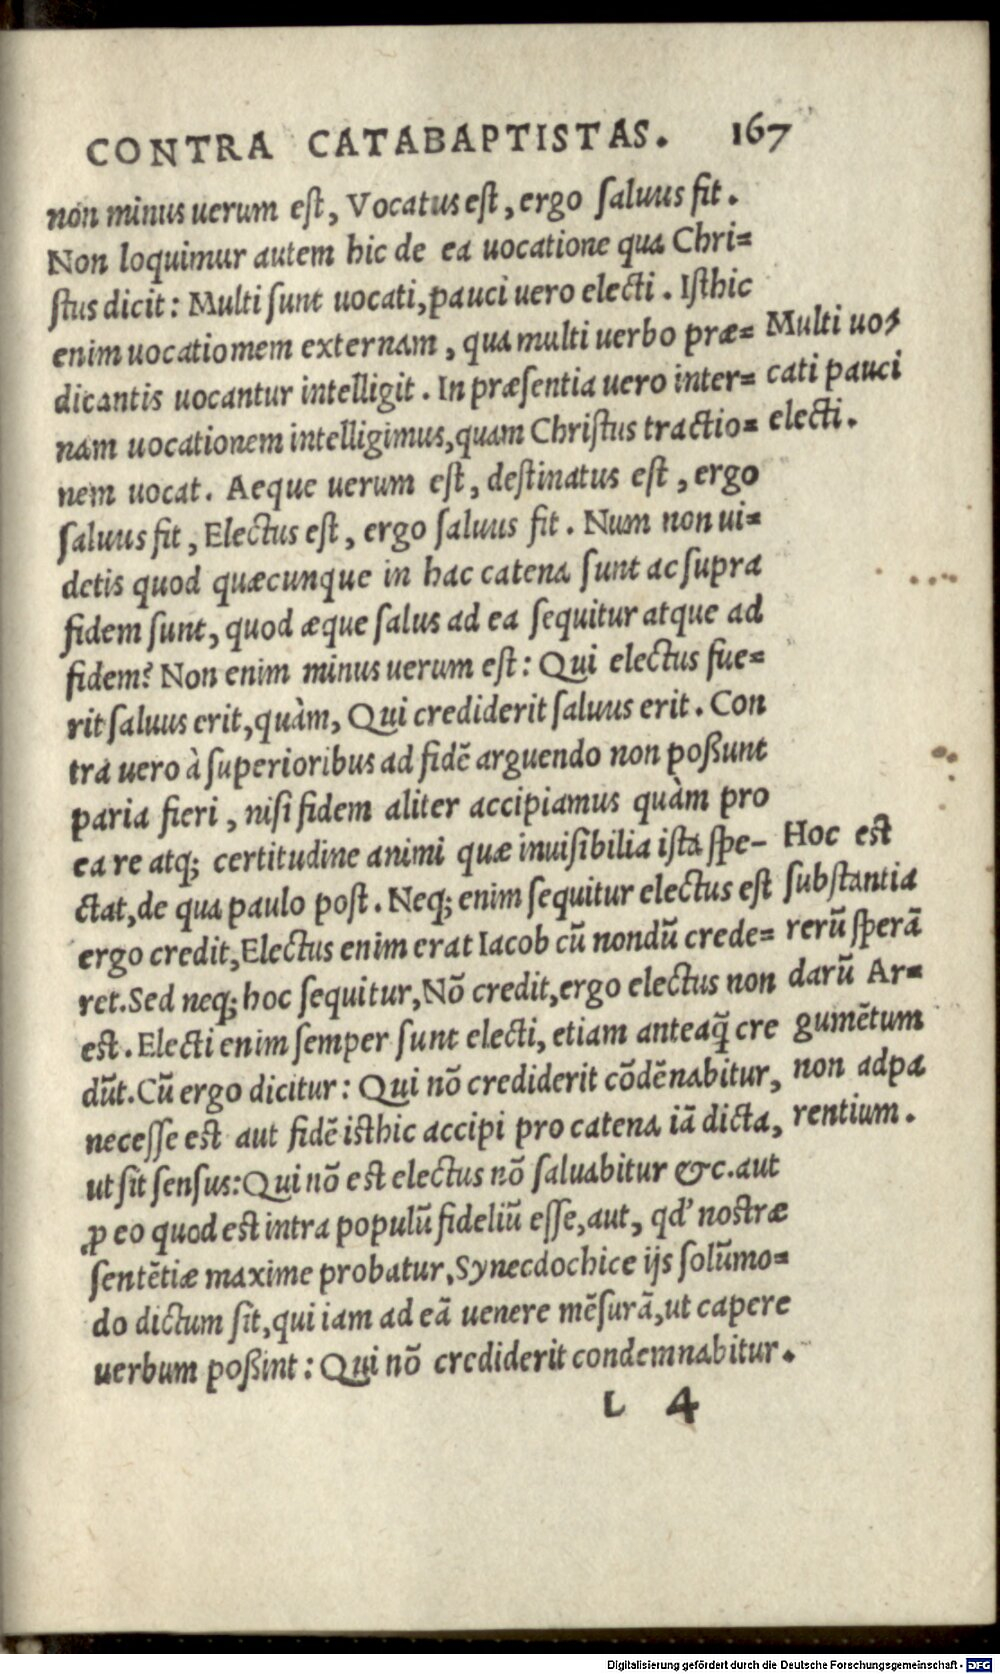 CONTRA CATABAPTISTAS. 167
non minus uerum est, Vocatus est, ergo saluus fit.
Non loquimur autem hic de ea uocatione qua Chri=
stus dicit: Multi sunt uocati, pauci uero electi. Isthic
enim uocatiomem externam, qua multi uerbo præ=
dicantis uocantur intelligit. In præsentia uero inter=
nam uocationem intelligimus, quam Christus tractio=
nem uocat. Aeque uerum est, destinatus est, ergo
saluus fit, Electus est, ergo saluus fit. Num non ui=
detis quod quæcunque in hac catena sunt ac supra
fidem sunt, quod æque salus ad ea sequitur atque ad
fidem? Non enim minus uerum est: Qui electus fue=
rit saluus erit, quàm, Qui crediderit saluus erit. Con
tra uero à superioribus ad fidē arguendo non poßunt
paria fieri, nisi fidem aliter accipiamus quàm pro
ea re atq; certitudine animi quæ inuisibilia ista spe-
ctat, de qua paulo post. Neq; enim sequitur electus est
ergo credit, Electus enim erat Iacob cū nondū crede=
ret. Sed neq; hoc sequitur, Nō credit, ergo electus non
est. Electi enim semper sunt electi, etiam anteaq̃ cre
dūt. Cū ergo dicitur: Qui nō crediderit cōdēnabitur,
necesse est aut fidē isthic accipi pro catena iā dicta,
ut sit sensus: Qui nō est electus nō saluabitur &c. aut
ꝓ eo quod est intra populū fideliū esse, aut, qd' nostræ
sentētiæ maxime probatur, Synecdochice ijs solūmo=
do dictum sit, qui iam ad eā uenere mēsurā, ut capere
uerbum poßint: Qui nō crediderit condemnabitur.
L 4
Multi uo=
cati pauci
electi.
Hoc est
substantia
rerū sperā
darū Ar=
gumētum
non adpa
rentium.
Digitalisierung gefördert durch die Deutsche Forschungsgemeinschaft - DFG